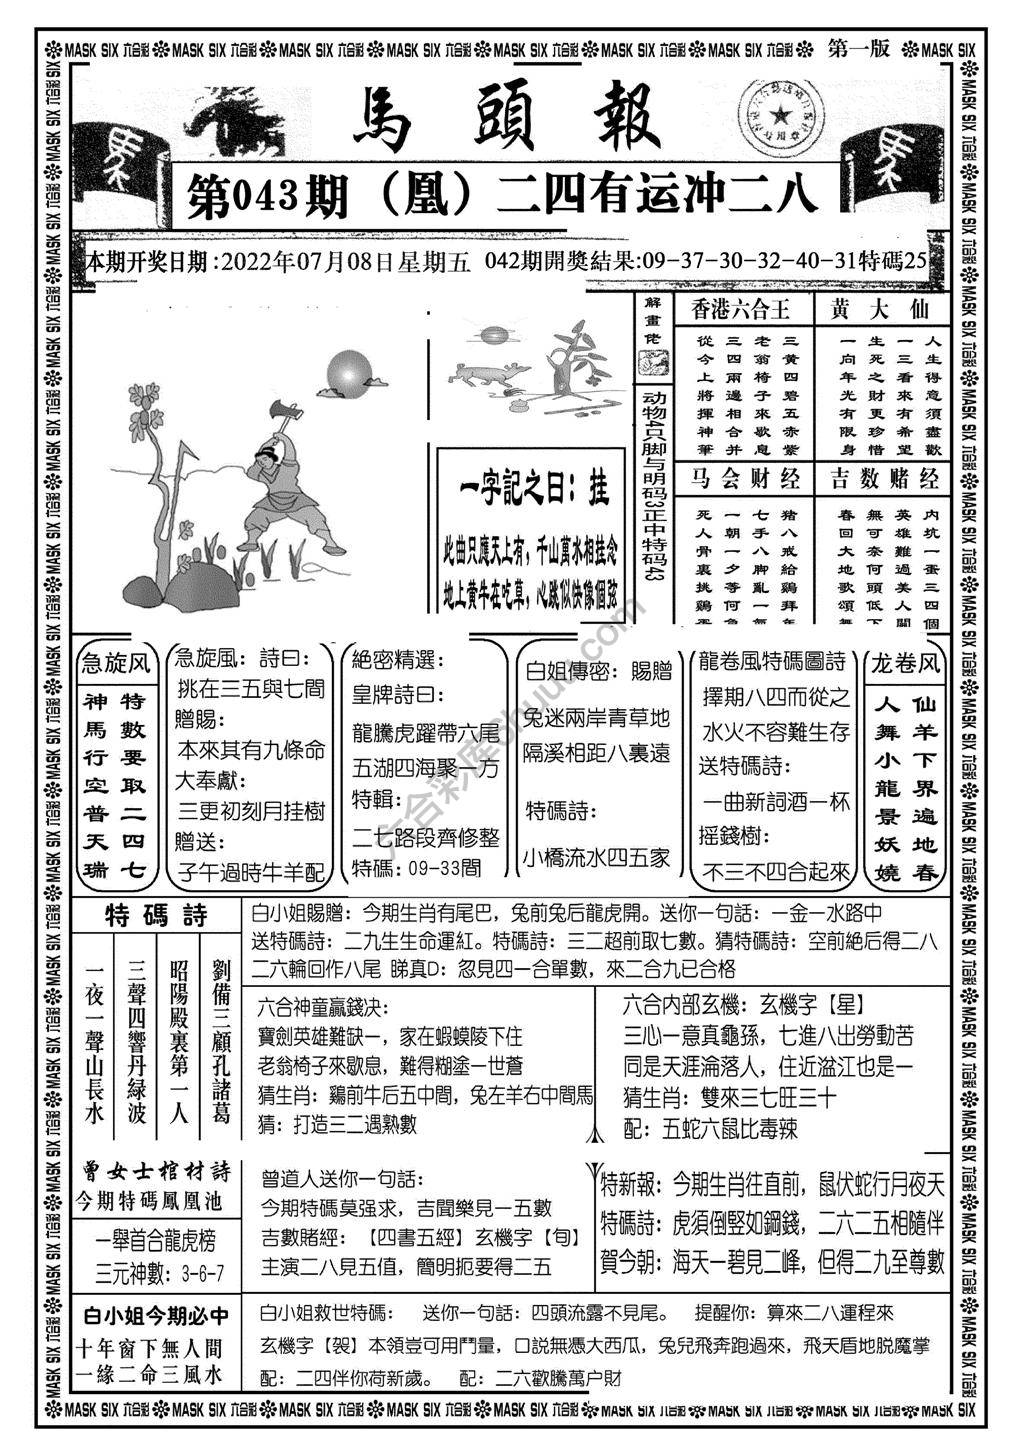 MASK SIX 六合彩 MASK SIX 六合彩 MASK SIX 六合彩 MASK SIX 六合彩 MASK SIX 六合彩 MASK SIX 六合彩 MASK SIX 六合彩 第一版 MASK SIX
馬頭報
第043期（凰）二四有运冲二八
本期开奖日期:2022年07月08日星期五 042期開獎結果:09-37-30-32-40-31特碼25
解畫佬
动物4只脚与明码3正中特码43
香港六合王
三黄四碧五赤紫
老翁椅子來歇息
三四兩邊相合并
從今上將揮神筆
黄大仙
人生得意須盡歡
一三看來有希望
生死之財更珍惜
一向年光有限身
马会财经
猪八戒給鷄拜年
七手八脚亂一氣
一朝一夕等何急
死人骨裏挑鷄蛋
吉数赌经
内坑一蛋三四個
英雄難過美人關
無可奈何頭低下
春回大地歌頌舞
一字記之曰：挂
此曲只應天上有，千山萬水相挂念
地上黄牛在吃草，心跳似快像個弦
急旋风
特數要取二四七
神馬行空普天瑞
急旋風：詩曰：
挑在三五與七間
贈賜：
本來其有九條命
大奉獻：
三更初刻月挂樹
贈送：
子午過時牛羊配
絶密精選：
皇牌詩曰：
龍騰虎躍帶六尾
五湖四海聚一方
特輯：
二七路段齊修整
特碼：09-33間
白姐傳密：賜贈
兔迷兩岸青草地
隔溪相距八裏遠
特碼詩：
小橋流水四五家
龍卷風特碼圖詩
擇期八四而從之
水火不容難生存
送特碼詩：
一曲新詞酒一杯
摇錢樹：
不三不四合起來
龙卷风
仙羊下界遍地春
人舞小龍景妖嬈
六合彩库6huu.com
特碼詩
劉備三顧孔諸葛
昭陽殿裏第一人
三聲四響丹緑波
一夜一聲山長水
白小姐賜贈：今期生肖有尾巴，兔前兔后龍虎開。送你一句話：一金一水路中
送特碼詩：二九生生命運紅。特碼詩：三二超前取七數。猜特碼詩：空前絶后得二八
二六輪回作八尾 睇真D：忽見四一合單數，來二合九已合格
六合神童贏錢决：
寶劍英雄難缺一，家在蝦蟆陵下住
老翁椅子來歇息，難得糊塗一世蒼
猜生肖：鷄前牛后五中間，兔左羊右中間馬
猜：打造三二遇熟數
六合内部玄機：玄機字【星】
三心一意真龜孫，七進八出勞動苦
同是天涯淪落人，住近湓江也是一
猜生肖：雙來三七旺三十
配：五蛇六鼠比毒辣
曾女士棺材詩
今期特碼鳳凰池
一舉首合龍虎榜
三元神數：3-6-7
曾道人送你一句話：
今期特碼莫强求，吉聞樂見一五數
吉數賭經：【四書五經】玄機字【旬】
主演二八見五值，簡明扼要得二五
特新報：今期生肖往直前，鼠伏蛇行月夜天
特碼詩：虎須倒竪如鋼錢，二六二五相隨伴
賀今朝：海天一碧見二峰，但得二九至尊數
白小姐今期必中
十年窗下無人間
一緣二命三風水
白小姐救世特碼： 送你一句話：四頭流露不見尾。 提醒你：算來二八運程來
玄機字【袈】本領豈可用鬥量，口説無憑大西瓜，兔兒飛奔跑過來，飛天盾地脱魔掌
配：二四伴你荷新歲。 配：二六歡騰萬户財
MASK SIX 六合彩 MASK SIX 六合彩 MASK SIX 六合彩 MASK SIX 六合彩 MASK SIX 六合彩 MASK SIX 六合彩 MASK SIX 六合彩 MASK SIX 六合彩 MASK SIX